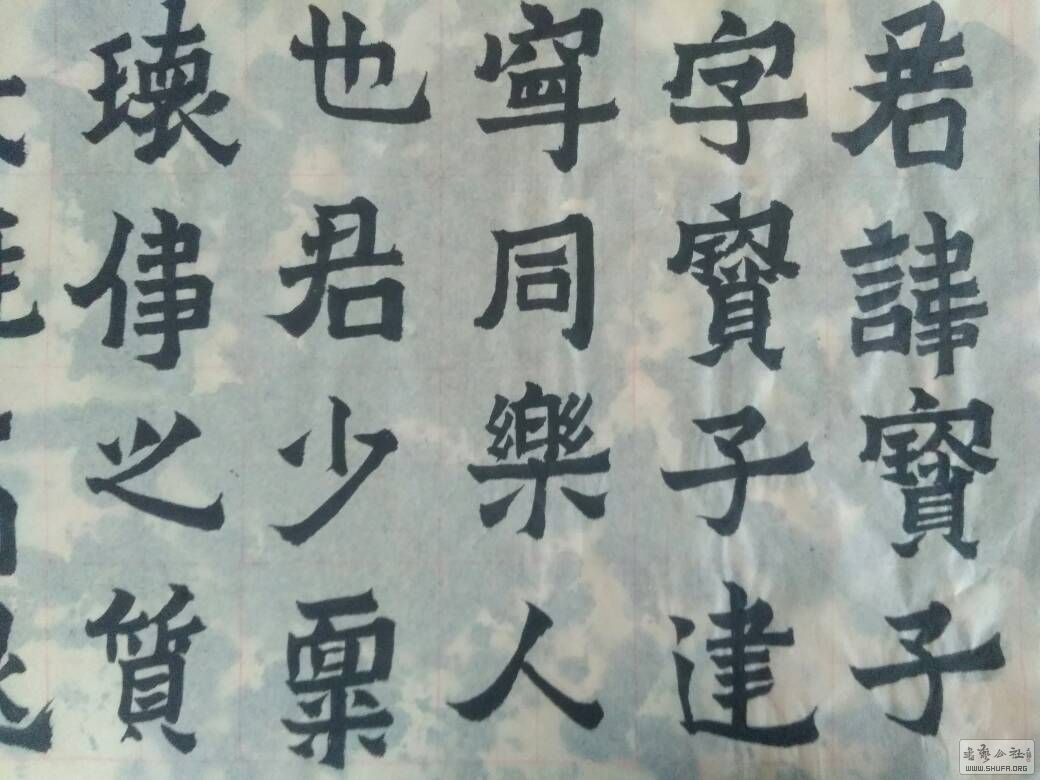 君諱寳子
字寳子建
寧同樂人
也君少稟
瓌偉之質
书艺公社
WWW.SHUFA.ORG